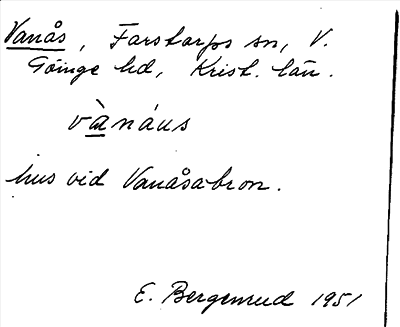 Vanås, Farstorps sn, V.
Göinge hd, Krist. län.
vànáus
hus vid Vanåsabron.
E. Bergenrud 1951